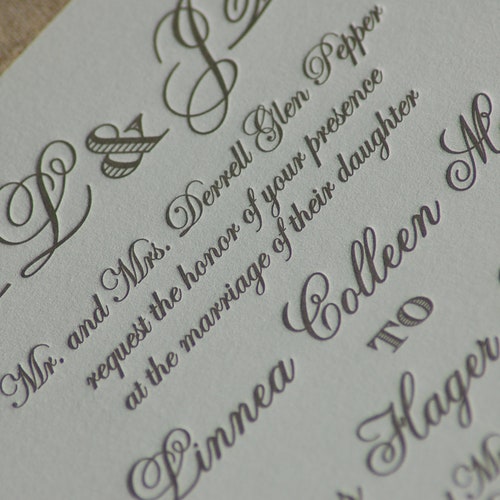 L & J
Mr. and Mrs. Derrell Glen Pepper
request the honor of your presence
at the marriage of their daughter
Linnea Colleen
TO
Hager